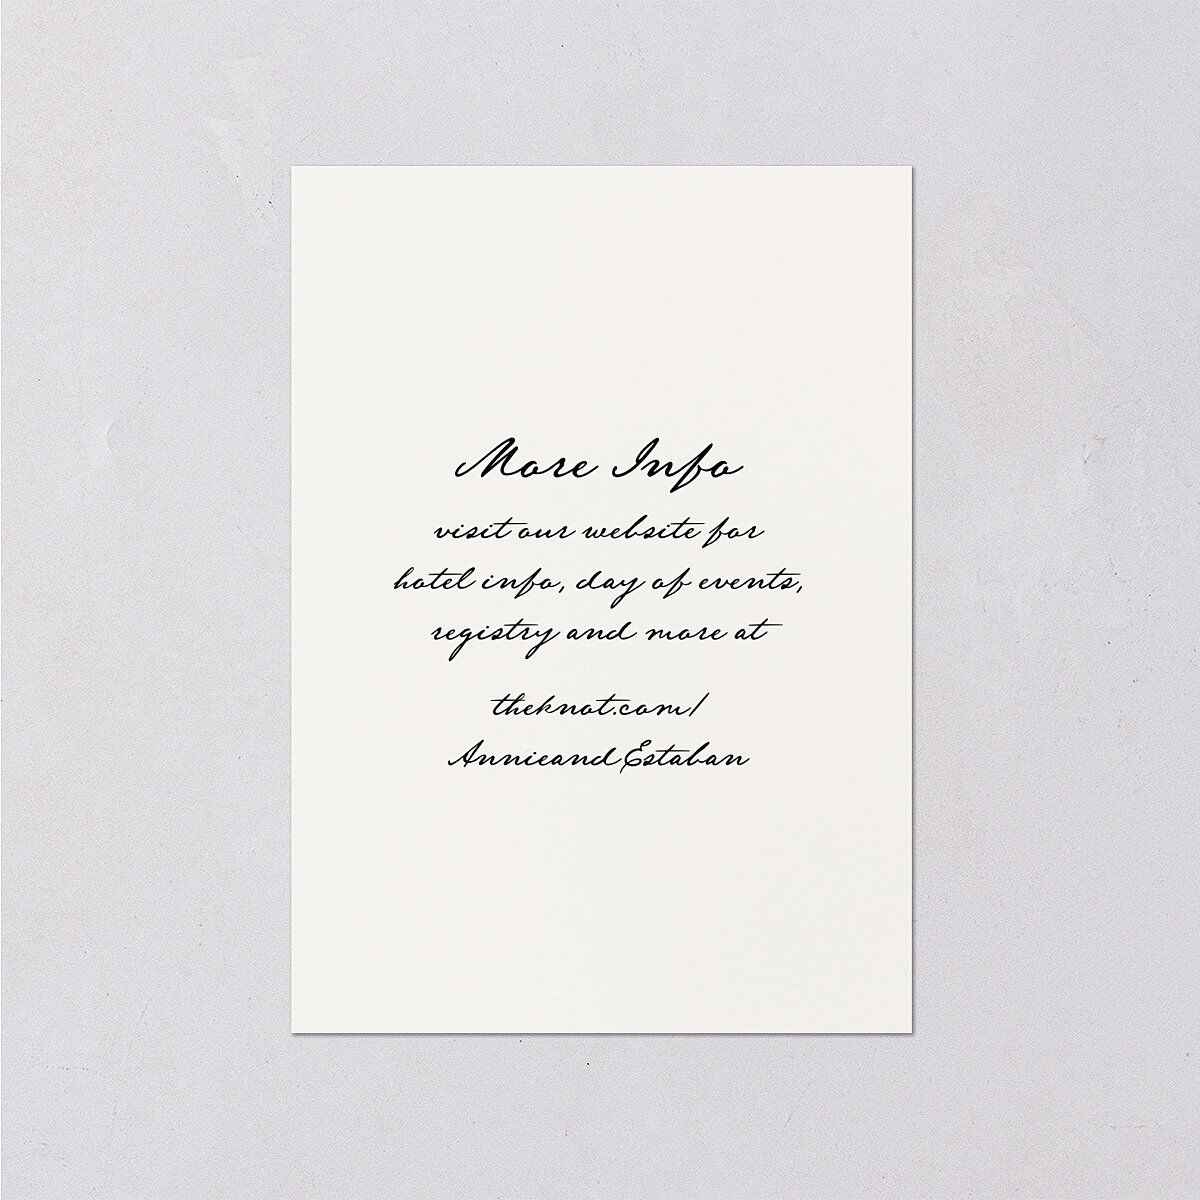 More Info
visit our website for
hotel info, day of events,
registry and more at
theknot.com/
AnnieandEstaban